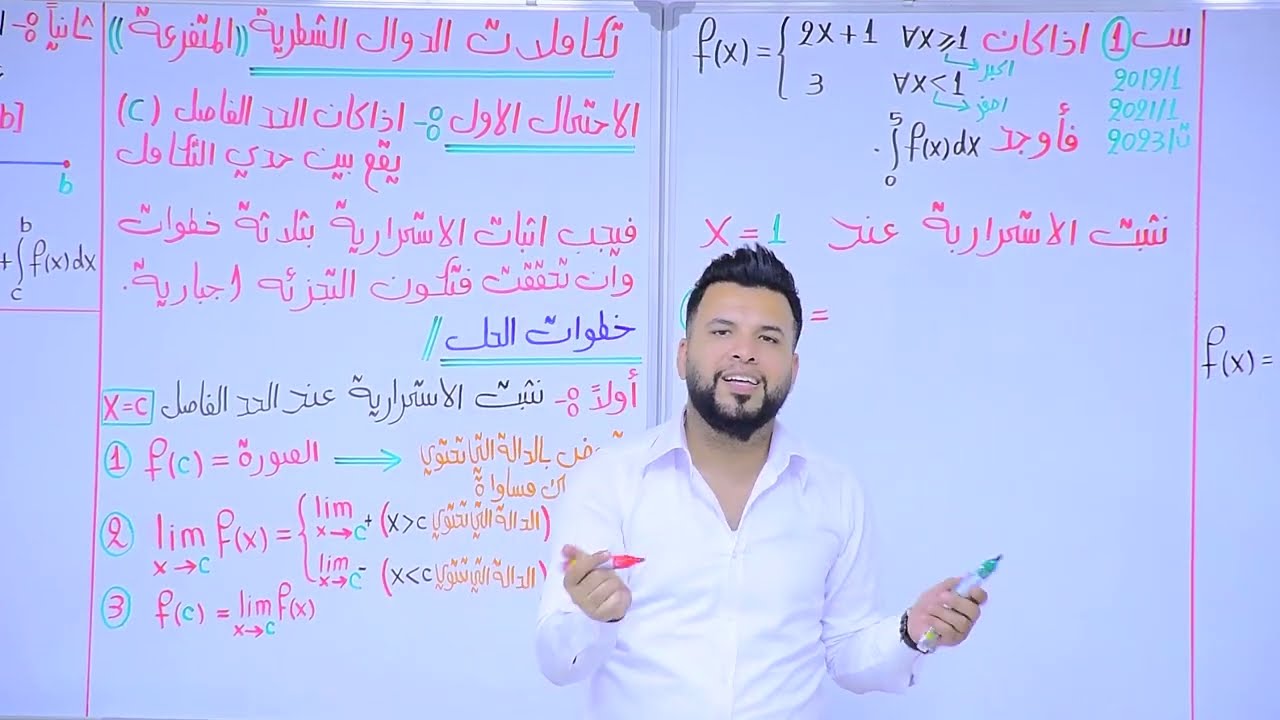 تكاملات الدوال الشطرية ((المتفرعة))
الاحتمال الاول :- اذا كان الحد الفاصل (C)
يقع بين حدي التكامل
فيجب اثبات الاستمرارية بثلاثة خطوات
وان تحققت فتكون التجزئه اجبارية.
خطوات الحل //
أولاً :- نثبت الاستمرارية عند الحد الفاصل x=c
① f(c) = الصورة ⟹ بالدالة التي تحتوي
مساواة
② lim x→c f(x) = { lim x→c⁺ (الدالة التي تحتوي x>c)
lim x→c⁻ (الدالة التي تحتوي x<c)
③ f(c) = lim x→c f(x)
س① اذا كان f(x) = { 2x+1 ∀x⩾1
اكبر
3 ∀x<1
اصغر
2019/1
2021/1
2023/ت
فأوجد ∫₀⁵ f(x)dx .
نثبت الاستمرارية عند x = 1
=
ثانياً :-
b]
b
+∫ᵇc f(x)dx
f(x) =